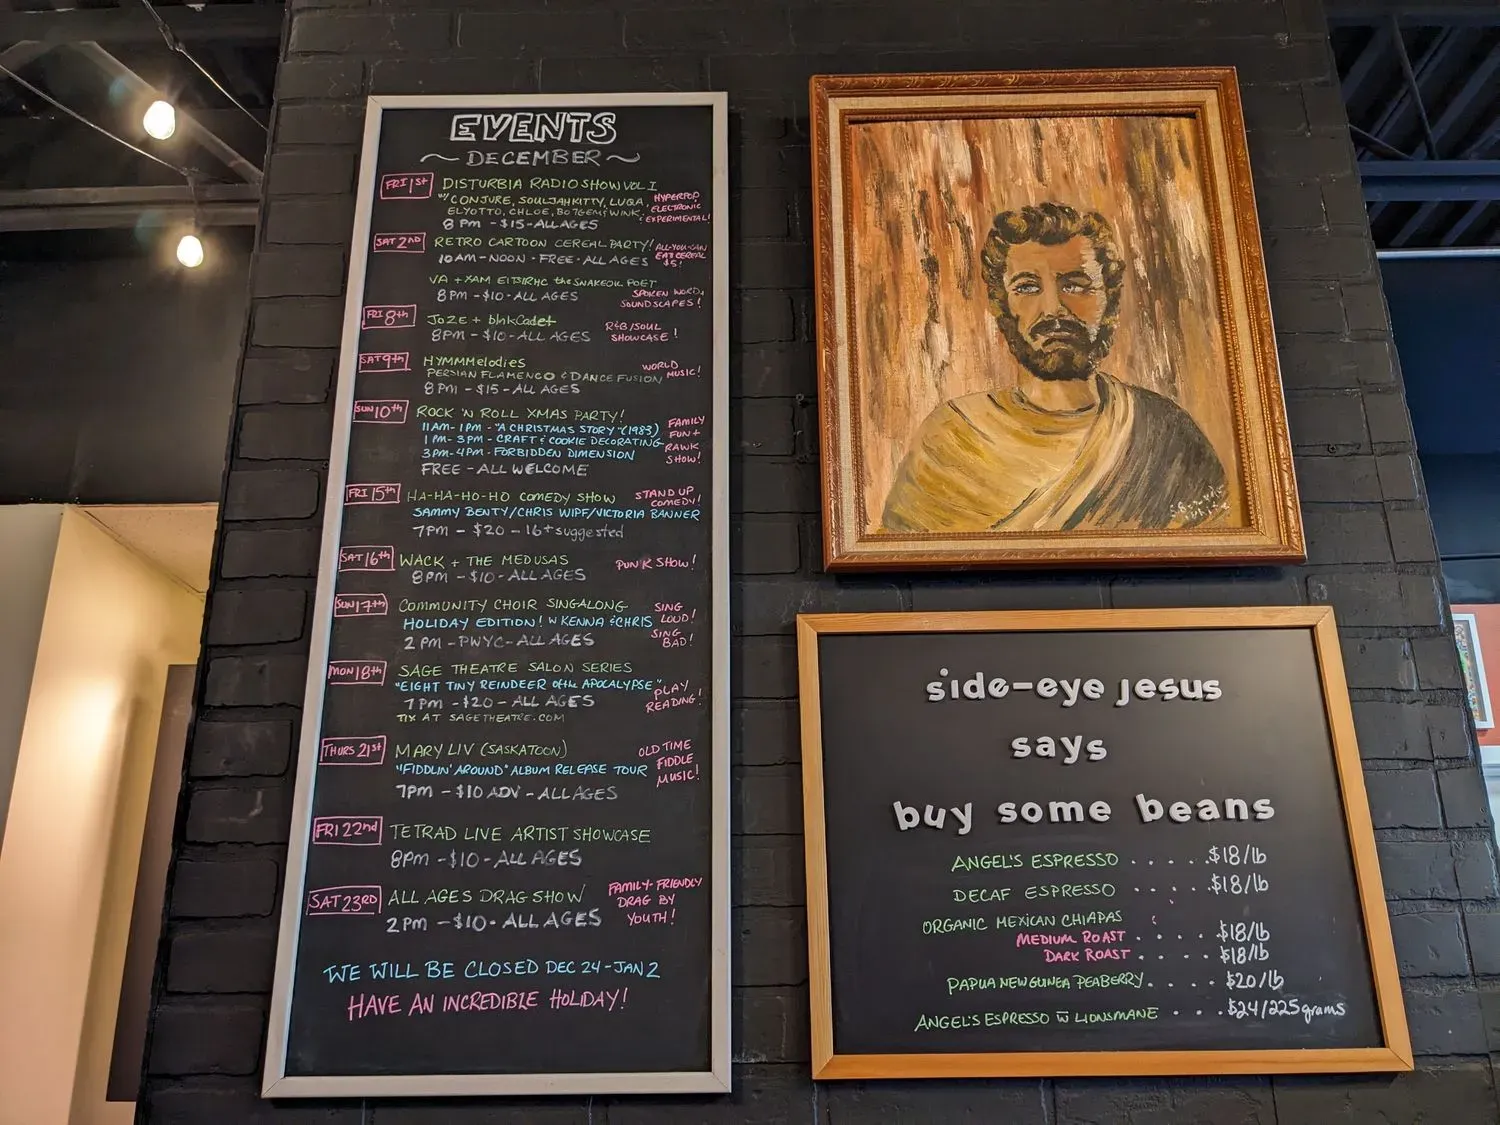 EVENTS
~ DECEMBER ~
FRI 1st
DISTURBIA RADIO SHOW VOL I
w/ CONJURE, SOULJAHKITTY, LUQA,
ELYOTTO, CHLOE, BOTGEM & WINK.
8 PM - $15 - ALL AGES
HYPERPOP
ELECTRONIC
EXPERIMENTAL!
SAT 2ND
RETRO CARTOON CEREAL PARTY!
10AM - NOON - FREE - ALL AGES
ALL-YOU-CAN
EAT CEREAL
$5!
VA + XAM the SNAKEOIL POET
8PM - $10 - ALL AGES
SPOKEN WORD +
SOUNDSCAPES!
FRI 8th
JOZE + blnkCadet
8PM - $10 - ALL AGES
R&B/SOUL
SHOWCASE!
SAT 9th
HYMMMelodies
PERSIAN FLAMENCO & DANCE FUSION
8 PM - $15 - ALL AGES
WORLD
MUSIC!
SUN 10th
ROCK 'N ROLL XMAS PARTY!
11AM - 1PM - "A CHRISTMAS STORY" (1983)
1 PM - 3PM - CRAFT & COOKIE DECORATING
3PM - 4PM - FORBIDDEN DIMENSION
FREE - ALL WELCOME
FAMILY
FUN +
RAWK
SHOW!
FRI 15th
HA-HA-HO-HO COMEDY SHOW
SAMMY BENTY/CHRIS WIPF/VICTORIA BANNER
7PM - $20 - 16+ suggested
STAND UP
COMEDY!
SAT 16th
WACK + THE MEDUSAS
8PM - $10 - ALL AGES
PUNK SHOW!
SUN 17th
COMMUNITY CHOIR SINGALONG
HOLIDAY EDITION! w KENNA & CHRIS
2 PM - PWYC - ALL AGES
SING
LOUD!
SING
BAD!
MON 18th
SAGE THEATRE SALON SERIES
"EIGHT TINY REINDEER of the APOCALYPSE"
7 PM - $20 - ALL AGES
TIX AT SAGETHEATRE.COM
PLAY
READING!
THURS 21st
MARY LIV (SASKATOON)
"FIDDLIN' AROUND" ALBUM RELEASE TOUR
7PM - $10 ADV - ALL AGES
OLD TIME
FIDDLE
MUSIC!
FRI 22nd
TETRAD LIVE ARTIST SHOWCASE
8PM - $10 - ALL AGES
SAT 23RD
ALL AGES DRAG SHOW
2 PM - $10 - ALL AGES
FAMILY-FRIENDLY
DRAG BY
YOUTH!
WE WILL BE CLOSED DEC 24 - JAN 2
HAVE AN INCREDIBLE HOLIDAY!
side-eye jesus
says
buy some beans
ANGEL'S ESPRESSO . . . . . $18/lb
DECAF ESPRESSO . . . . . $18/lb
ORGANIC MEXICAN CHIAPAS
MEDIUM ROAST . . . . . $18/lb
DARK ROAST . . . . . $18/lb
PAPUA NEW GUINEA PEABERRY . . . . $20/lb
ANGEL'S ESPRESSO w LIONSMANE . . . . $24/225 grams